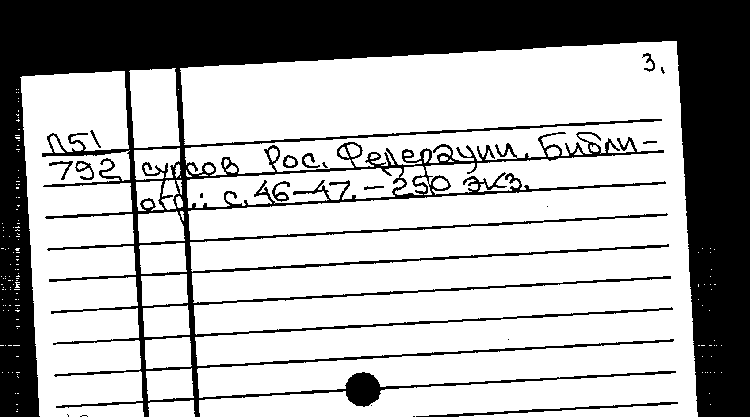 3.
П51
792 сурсов Рос. Федерации. Библи-
огр.: с. 46-47. - 250 экз.